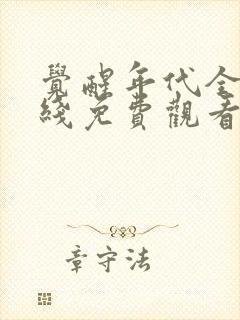 覺醒年代全
綫免費觀看
章守法